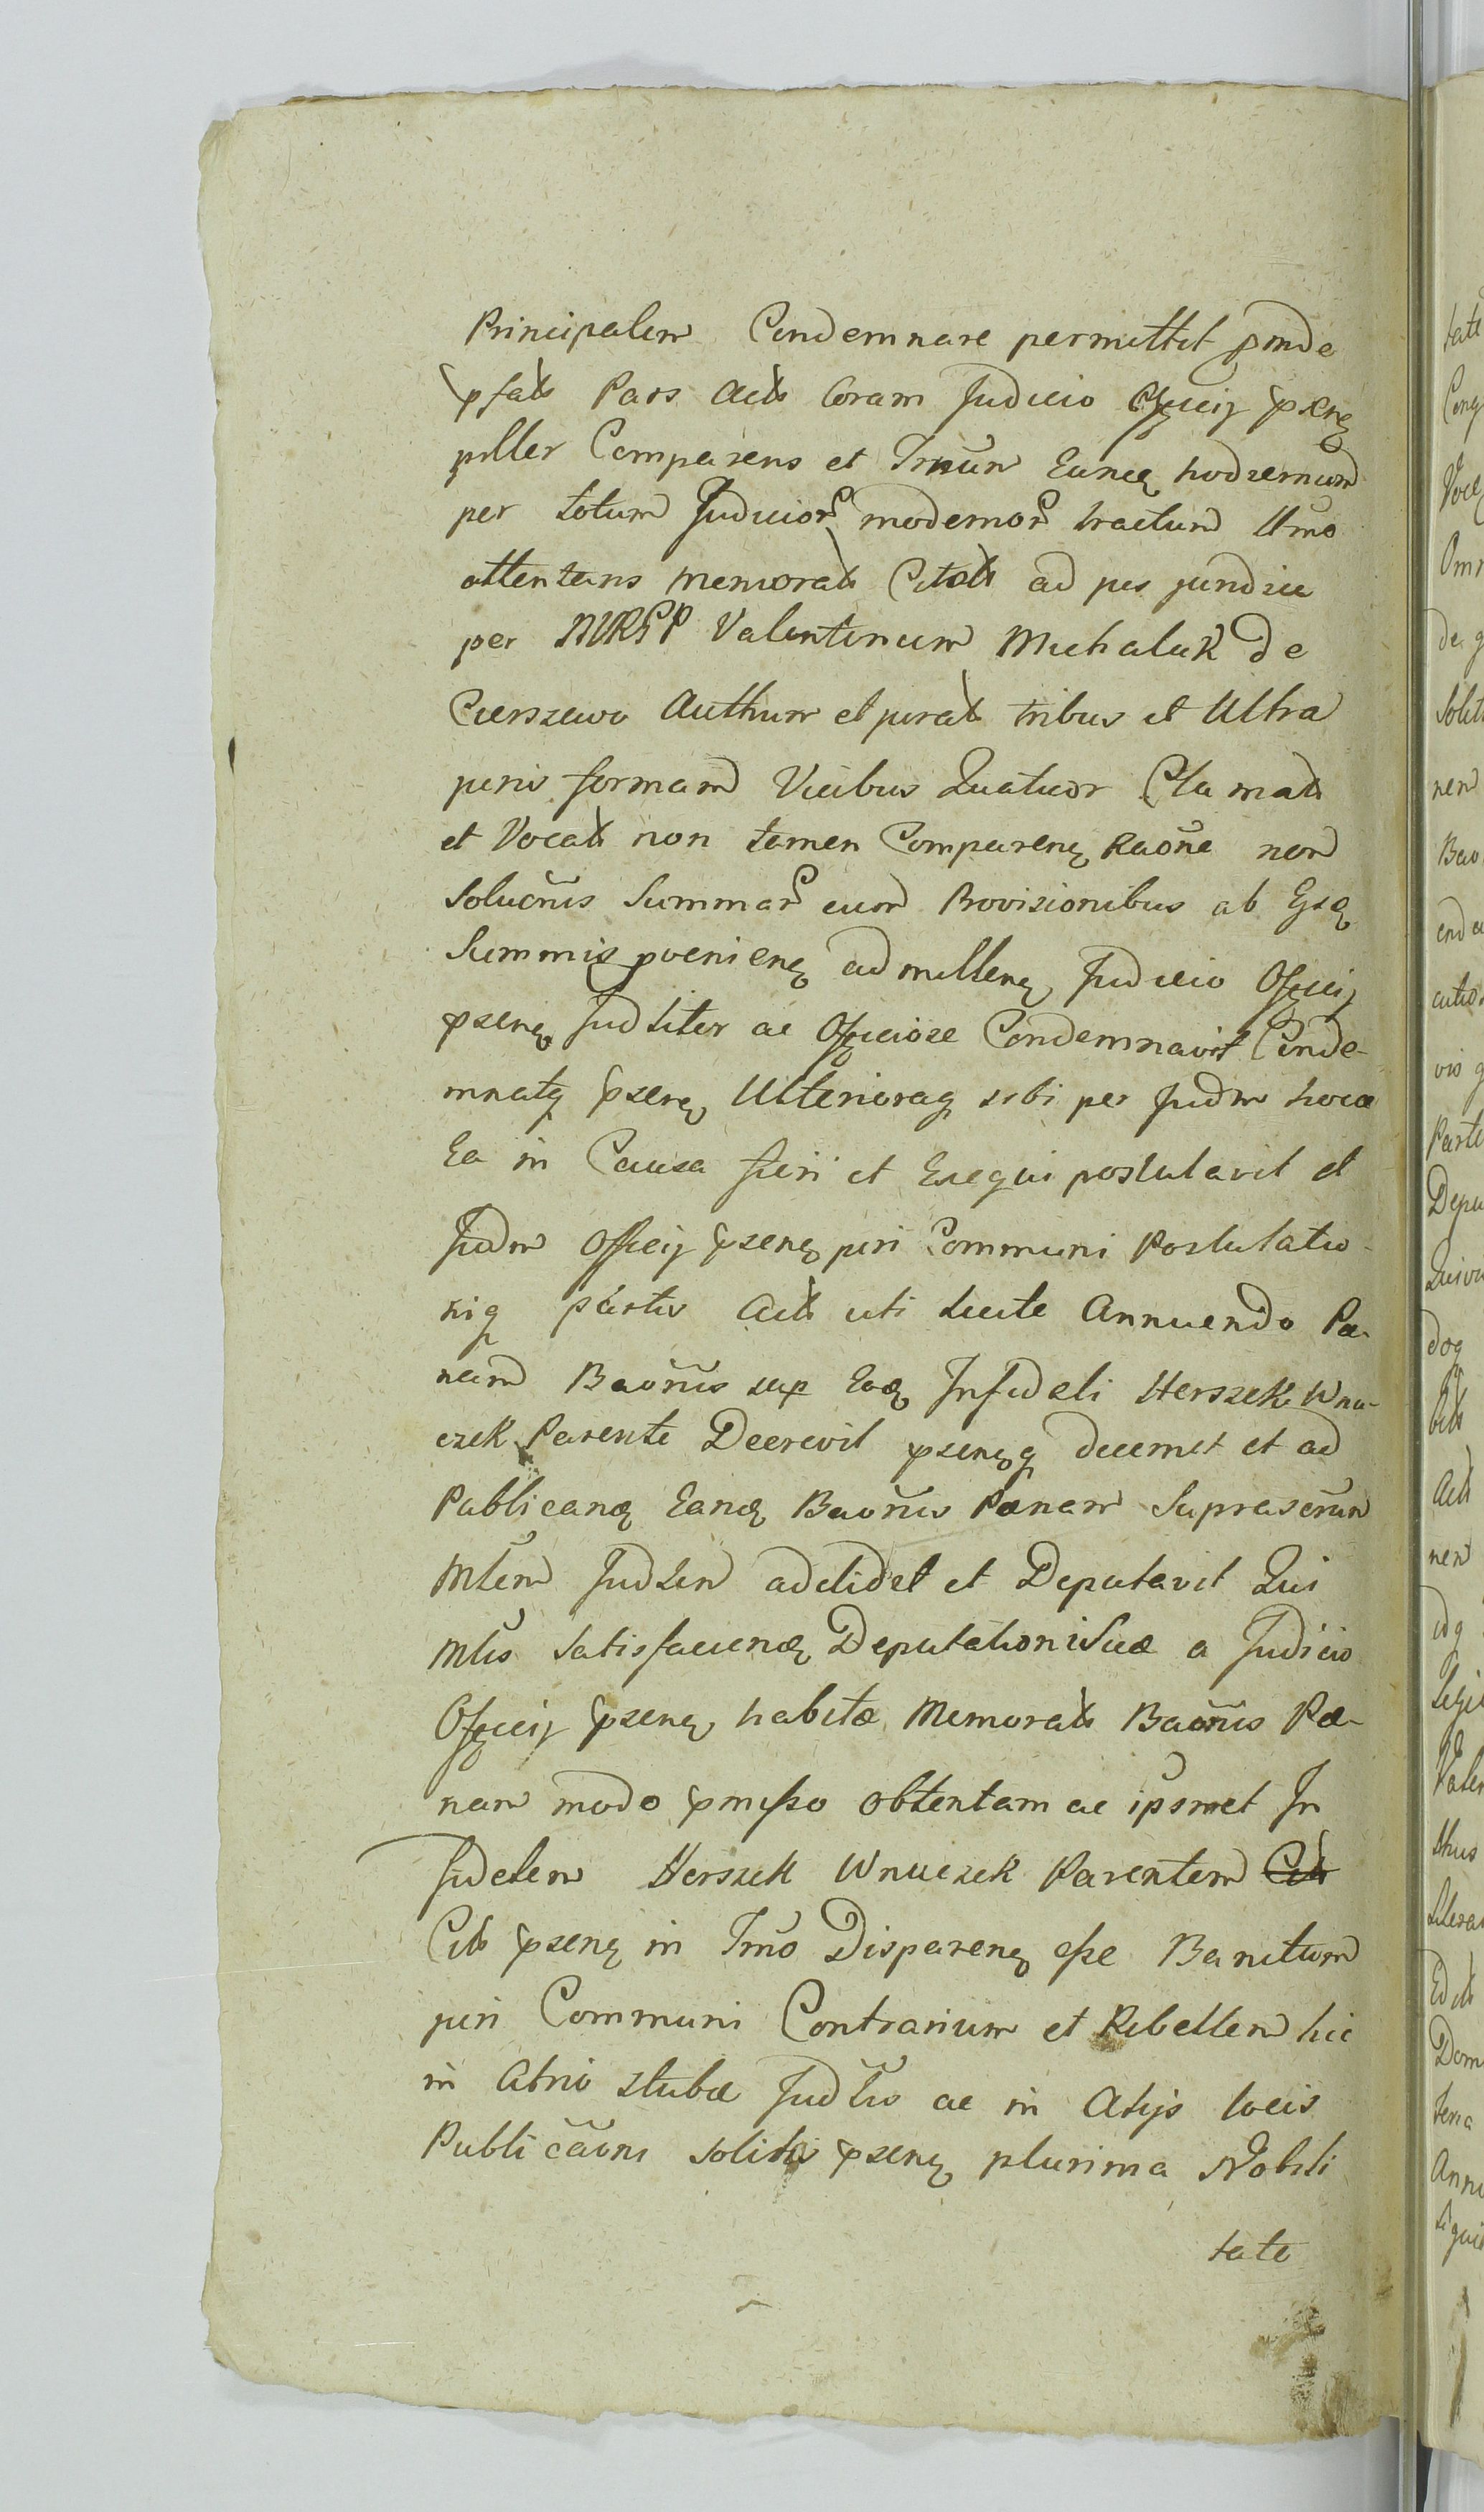 Principalem Condemnare permittit proinde
pfat Pars Act Coram Judicio Officij psenq
pller Comparens et Trnūm Eunq hodiernum
per totum Judicior modernor tractum Ulmo
attentans memorat Citat ad jus juridice
per MRGP Valentinum Michalak de
Cierszewo Authum et jurat tribus et Ultra
juris formam Vicibus Quatuor Clamat
et Vocat non tamen Comparenq Raōne non
Soluōnis Summar cum Provisionibus ab Ejsq
Summis pvenienq admittenq Judicio Officij
psenq Judliter ac Officiose Condemnavit Conde-
mnatq psenq Ulterioraq sibi per Judm hocce
Ea in Causa fieri et Exequi postulavit et
Judm Officij psenq juri Communi Postulatio-
niq partis Act uti licite Annuendo Pæ-
nam Baōnis sup Eoq Infideli Herszek Wnu-
czek Parente Decrevit psenqq decernit et ad
Publicanq Eanq Baōnis Pænam Suprascrūm
Mlem Judlem addidit et Deputavit Qui
Mlis Satisfacienq Deputationi Suæ a Judicio
Officij psenq habitæ Memorat Baōnis Pæ-
nam modo pmisso obtentam ac ipsmet In
fidelem Herszek Wnuczek Parentem Cit
Cit psenq in Trnō Disparenq esse Banitum
juri Communi Contrarium et Rebellem hic
in Atrio stubæ Judlis ac in Alijs locis
Publicāoni solitis psenq plurima Nobili
tate